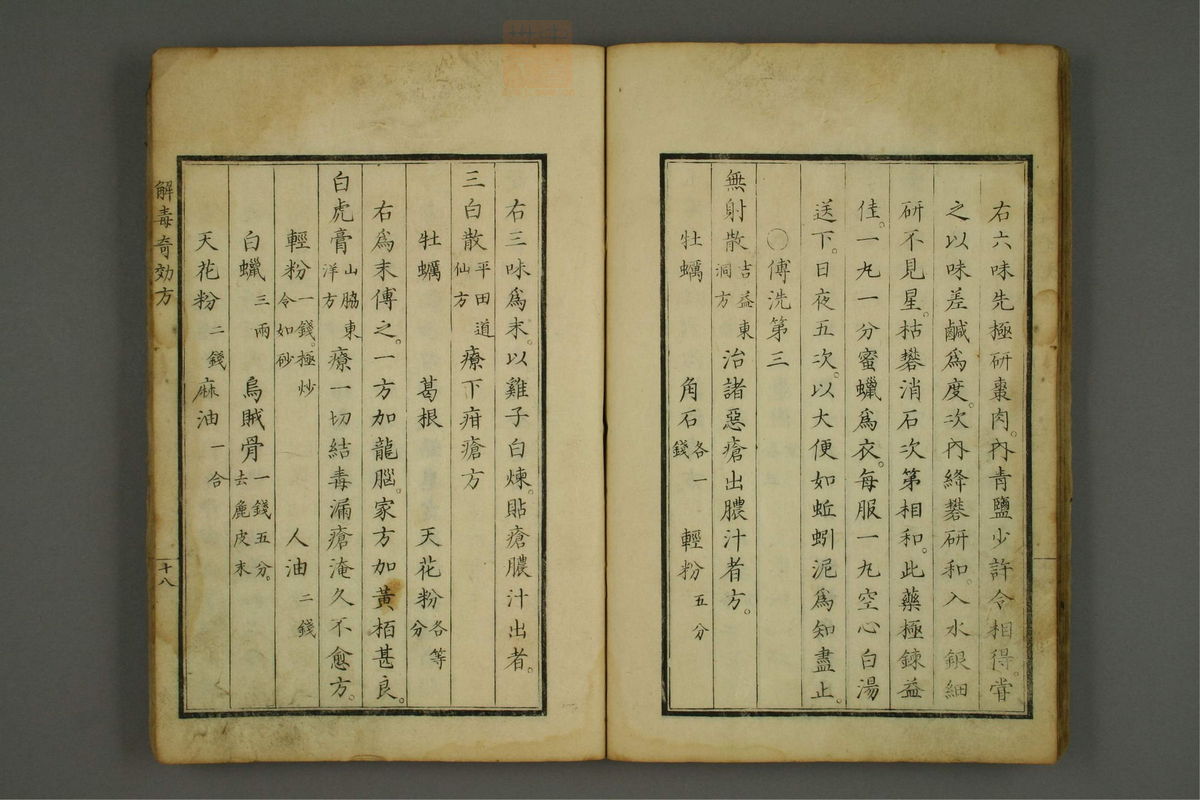 右六味先極研棗肉。內青鹽少許令相得。嘗
之以味差鹹爲度。次內絳礬研和。入水銀細
研不見星。枯礬消石次第相和。此藥極鍊益
佳。一丸一分蜜蠟爲衣。每服一丸空心白湯
送下。日夜五次。以大便如蚯蚓泥爲知盡止。
〇傅洗第三
無射散吉益東洞方治諸惡瘡出膿汁者方。
牡蠣 角石各一錢 輕粉五分
右三味爲末。以雞子白煉。貼瘡膿汁出者。
三白散平田道仙方療下疳瘡方
牡蠣 葛根 天花粉各等分
右爲末傅之。一方加龍腦。家方加黃栢甚良。
白虎膏山脇東洋方療一切結毒漏瘡淹久不愈方。
輕粉一錢。極炒令如砂 人油二錢
白蠟三兩 烏賊骨一錢五分。去麁皮末
天花粉二錢 麻油一合
解毒奇効方
十八